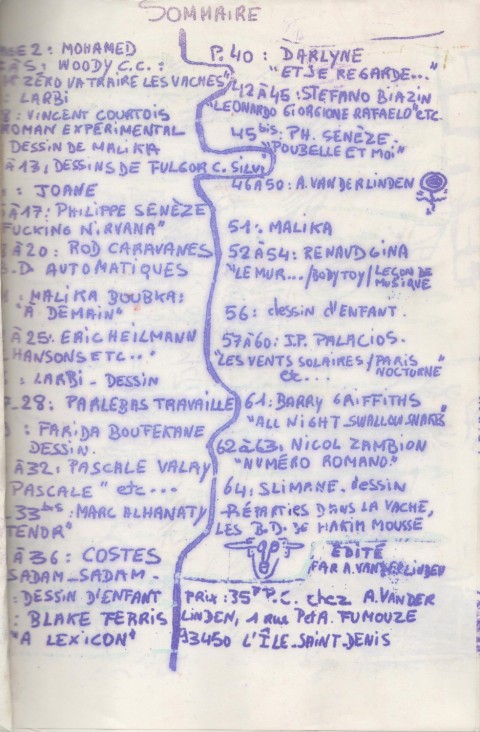 SOMMAIRE
2: MOHAMED
À 5: WOODY C.C.:
ZÉRO VA TRAIRE LES VACHES"
: LARBI
: VINCENT COURTOIS
ROMAN EXPÉRIMENTAL
DESSIN DE MALIKA
À 13, DESSINS DE FULGOR C. SILVI
: JOANE
À 17: PHILIPPE SENÈZE
FUCKING NIRVANA"
À 20: ROD CARAVANES
.D AUTOMATIQUES
: MALIKA BOUBKA:
"A DEMAIN"
À 25. ERIC HEILMANN
HANSONS ETC.."
: LARBI - DESSIN
28: PARLEBAS TRAVAILLE
: FARIDA BOUFEKANE
DESSIN.
À 32: PASCALE VALAY
PASCALE" etc...
33bis: MARC ALHANATY
TENDR"
À 36: COSTES
SADAM-SADAM.
: DESSIN D'ENFANT
: BLAKE FERRIS
"A LEXICON"
P.40: DARLYNE
"ET JE REGARDE..."
42 À 45: STEFANO BIAZIN
"LEONARDO GIORGIONE RAFAELO" ETC.
45bis: PH. SENÈZE.
"POUBELLE ET MOI"
46 À 50: A. VAN DER LINDEN
51: MALIKA
52 À 54: RENAUD GINA
"LE MUR.../BODY TOY/LEÇON DE MUSIQUE
56: dessin d'ENFANT.
57 À 60: J.P. PALACIOS.
"LES VENTS SOLAIRES/PARIS NOCTURNE"
etc...
61: BARRY GRIFFITHS
"ALL NIGHT SWALLOW SNARKS"
62 À 63: NICOL ZAMBION
"NUMÉRO ROMANO."
64: SLIMANE. dessin
RÉPARTIES DANS LA VACHE,
LES B.D. DE HAKIM MOUSSE
ÉDITÉ
PAR A. VANDERLINDEN
PRIX: 35F P.C. chez A. VANDER
LINDEN, 1 rue Pet A. FUMOUZE
93450 L'ÎLE-SAINT-DENIS